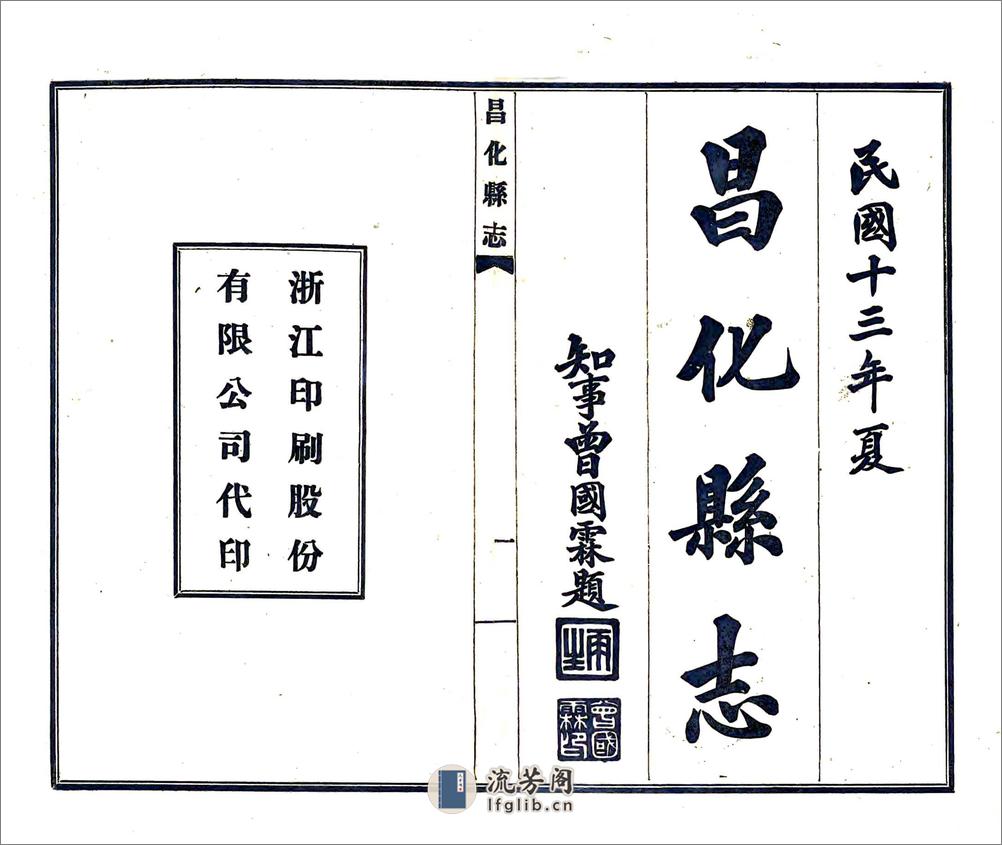 民國十三年夏
昌化縣志
知事曾國霖題
曾國霖印
昌化縣志
一
浙江印刷股份
有限公司代印
流芳阁
lfglib.cn